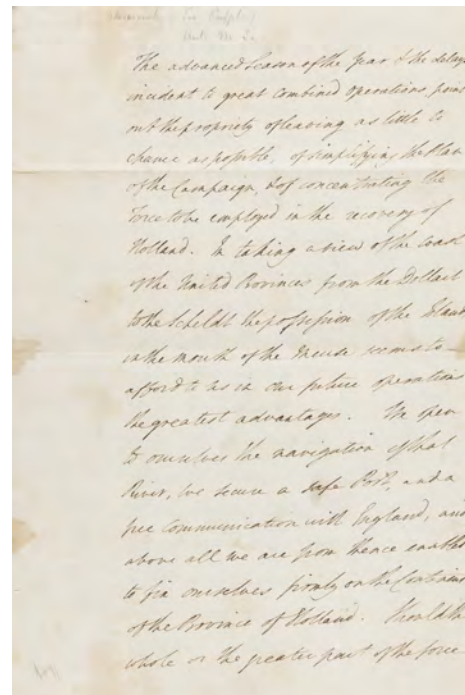 The advanced Season of the Year & the delays
incident to great combined operations, point
out the propriety of leaving as little to
chance as possible, of simplifying the Plan
of the Campaign, & of concentrating the
Force to be employed in the recovery of
Holland. In taking a view of the Coast
of the United Provinces from the Dollart
to the Scheldt the possession of the Island
in the mouth of the Meuse seems to
afford to us in our future operations
the greatest advantages. We open
to ourselves the navigation of that
River, we secure a safe Port, and a
free communication with England, and
above all we are from thence enabled
to fix ourselves firmly on the Continent
of the Province of Holland. Should the
whole or the greater part of the force